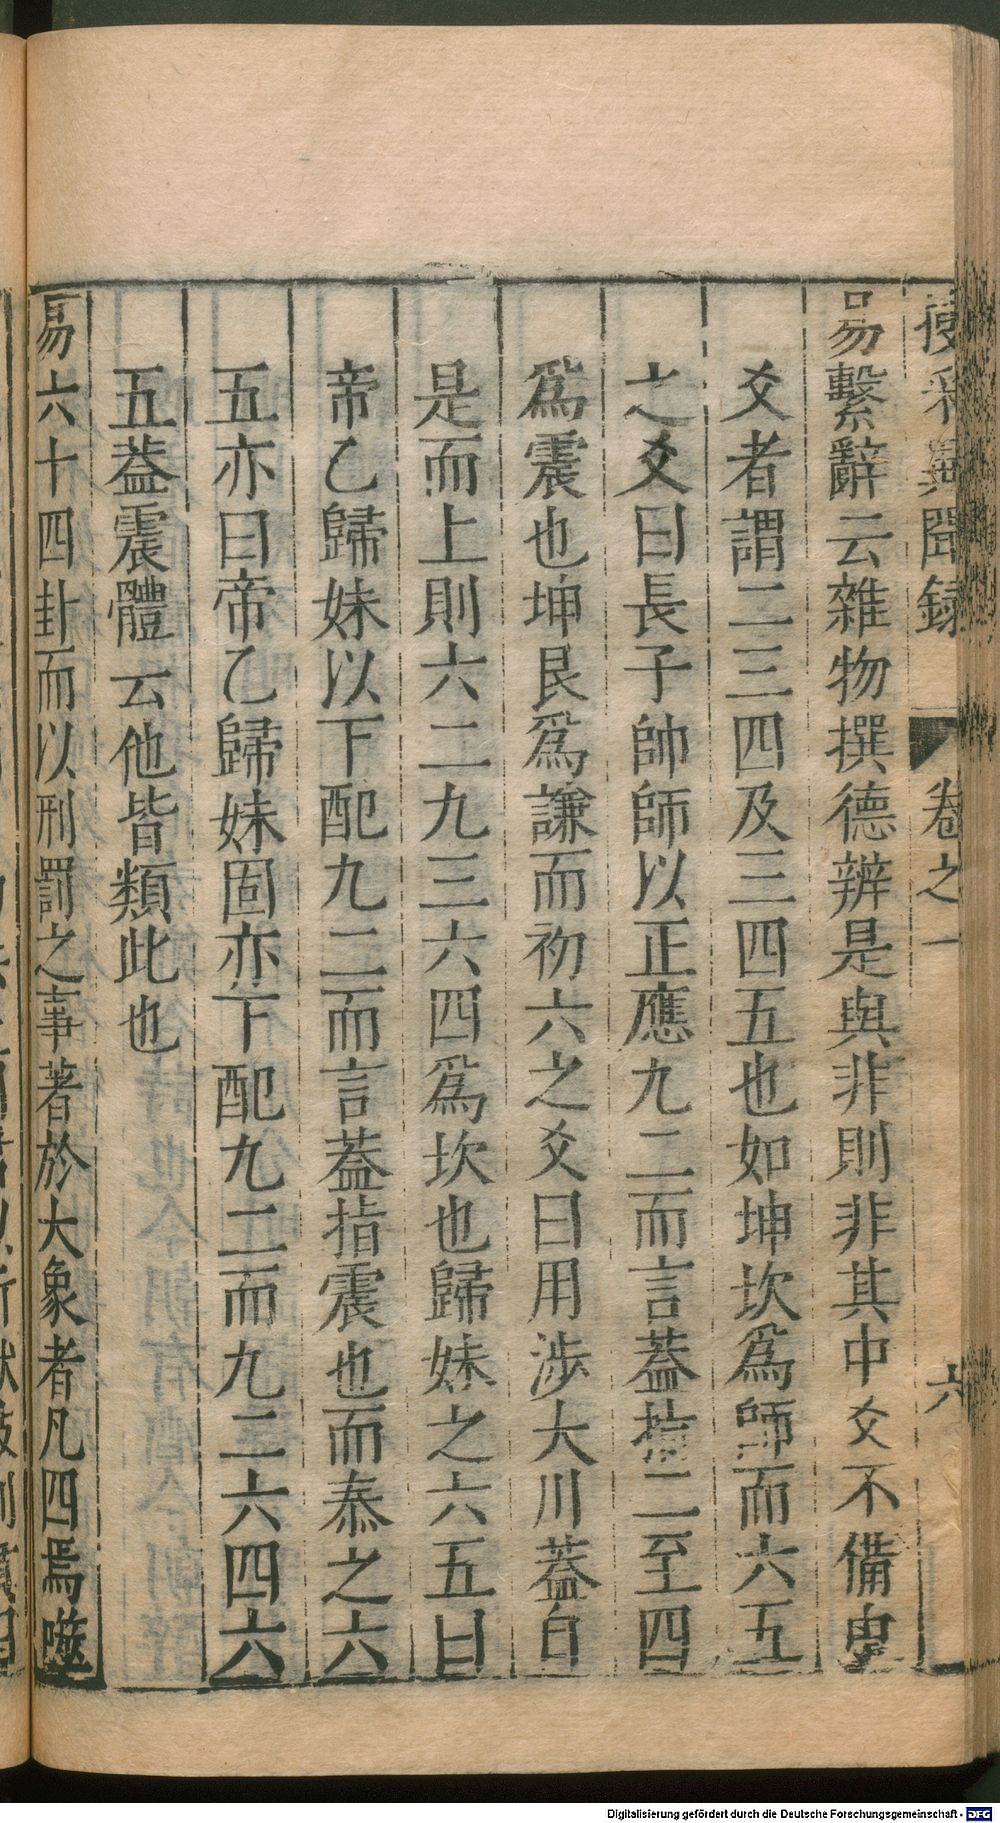 異聞録 卷之一 六
易繫辭云雜物撰德辨是與非則非其中爻不備中
爻者謂二三四及三四五也如坤坎爲師而六五
之爻曰長子帥師以正應九二而言葢指二至四
爲震也坤艮爲謙而初六之爻曰用涉大川葢自
是而上則六二九三六四爲坎也歸妹之六五曰
帝乙歸妹以下配九二而言葢指震也而泰之六
五亦曰帝乙歸妹固亦下配九二而九二六四六
五葢震體云他皆類此也
易六十四卦而以刑罰之事著於大象者凡四焉噬
Digitalisierung gefördert durch die Deutsche Forschungsgemeinschaft - DFG